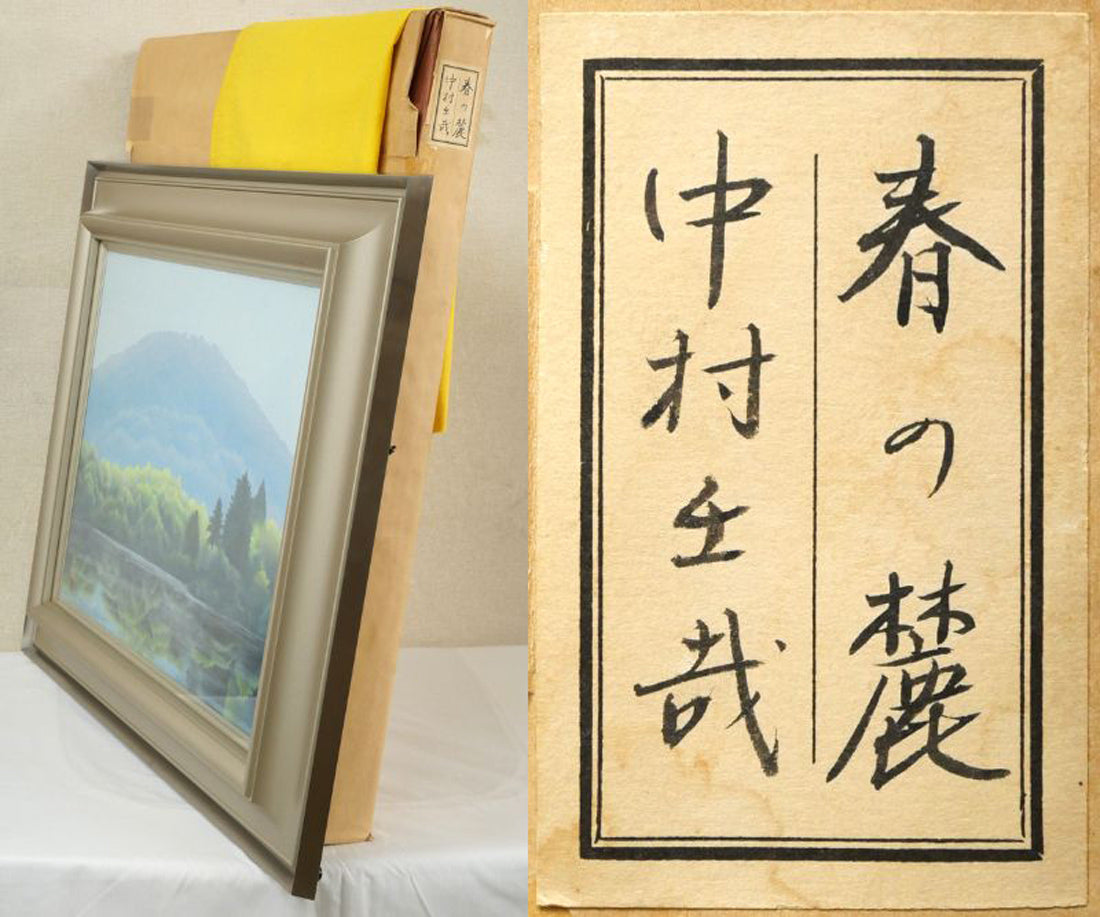 春の麓
中村壬哉
春の麓
中村壬哉